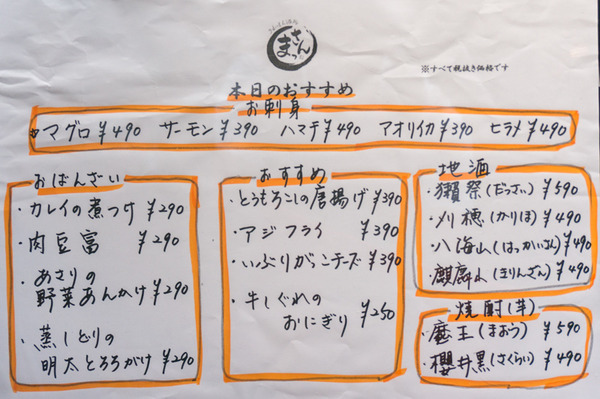 まさん
※すべて税抜き価格です
本日のおすすめ
お刺身
マグロ ¥490 サーモン ¥390 ハマチ ¥490 アオリイカ ¥390 ヒラメ ¥490
おばんざい
・カレイの煮つけ ¥290
・肉豆富 ¥290
・あさりの
野菜あんかけ ¥290
・蒸しどりの
明太とろろがけ ¥290
おすすめ
・とうもろこしの唐揚げ ¥390
・アジフライ ¥390
・いぶりがっこチーズ ¥390
・牛しぐれの
おにぎり ¥250
地酒
・獺祭(だっさい) ¥590
・刈穂(かりほ) ¥490
・八海山(はっかいさん) ¥490
・麒麟山(きりんざん) ¥490
焼酎(芋)
・魔王(まおう) ¥590
・櫻井黒(さくらい) ¥490